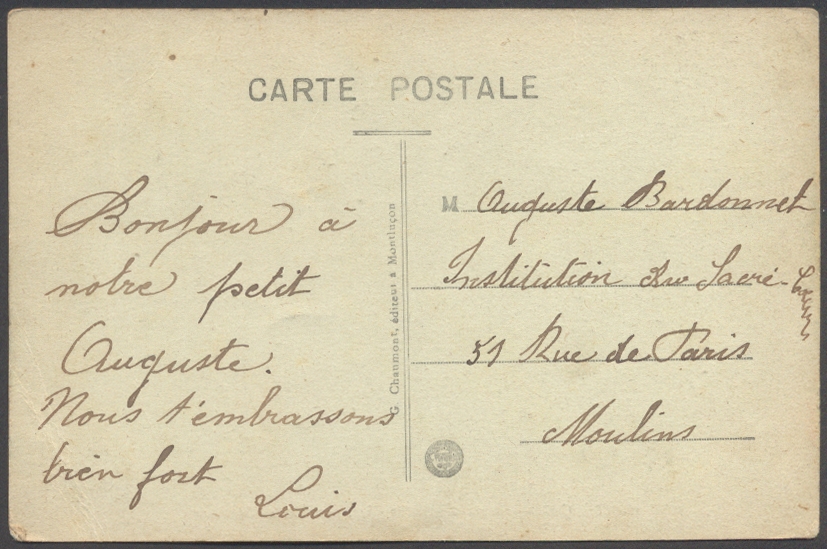 CARTE POSTALE
Bonjour à
notre petit
Auguste.
Nous t'embrassons
bien fort
Louis
G. Chaumont, éditeur à Montluçon
M Auguste Bardonnet
Institution du Sacré-Cœur
51 Rue de Paris
Moulins